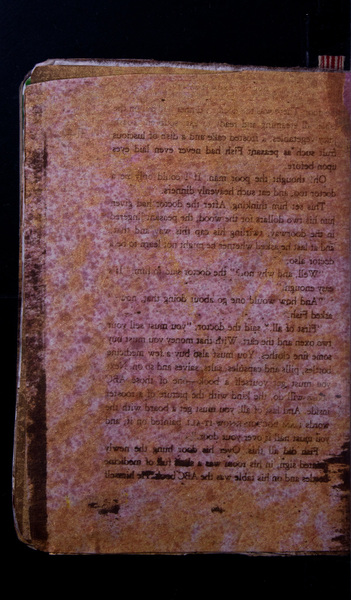 spectacles, a frosted cake and a dish of luscious
fruit such as peasant Fish had never even laid eyes
upon before.
Oh, thought the poor man, if I could only be a
doctor too, and eat such heavenly dinners.
This set him thinking. After the doctor had given
him his two dollars for the wood, the peasant lingered
in the doorway, twirling his cap this way and that
and at last he asked whether he might not learn to be a
doctor also.
"Well, and why not?" the doctor said to him. "It's
easy enough."
"And how would one go about doing that, now?"
asked Fish.
"First of all," said the doctor, "you must sell your
two oxen and the cart. With that money you must buy
some fine clothes. You must also buy a few medicine
bottles, pills and capsules, salts, salves and so on. Next
you must get yourself a book—one of those ABC
will do, the kind with the picture of a rooster
inside. And last of all, you must get a board with the
words painted on it, and
you must nail it over your door."
Fish did all this. Over his door hung the newly
painted sign; in his room was a shelf full of medicine
bottles and on his table was the ABC book. He himself